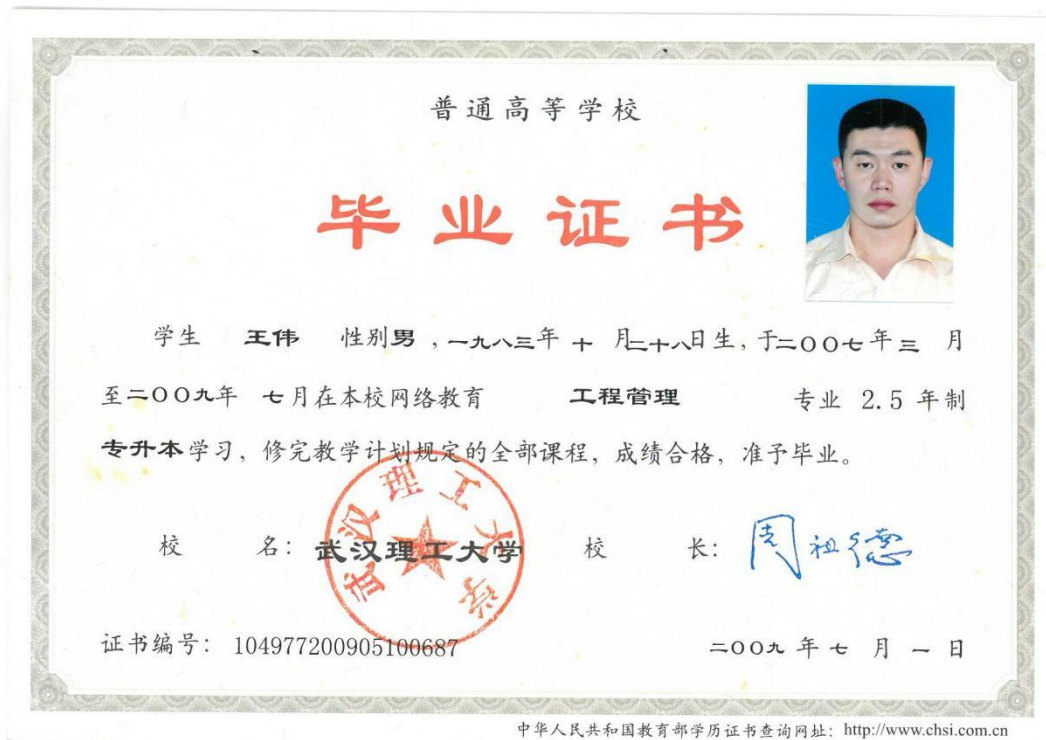 普通高等学校
毕业证书
学生 王伟 性别男，一九八三年 十 月二十八日生，于二〇〇七年 三 月
至二〇〇九年 七月在本校网络教育 工程管理 专业 2.5 年制
专升本学习，修完教学计划规定的全部课程，成绩合格，准予毕业。
武汉理工大学
校 名：武汉理工大学 校 长：周祖德
证书编号：104977200905100687 二〇〇九 年 七 月 一 日
中华人民共和国教育部学历证书查询网址：http://www.chsi.com.cn